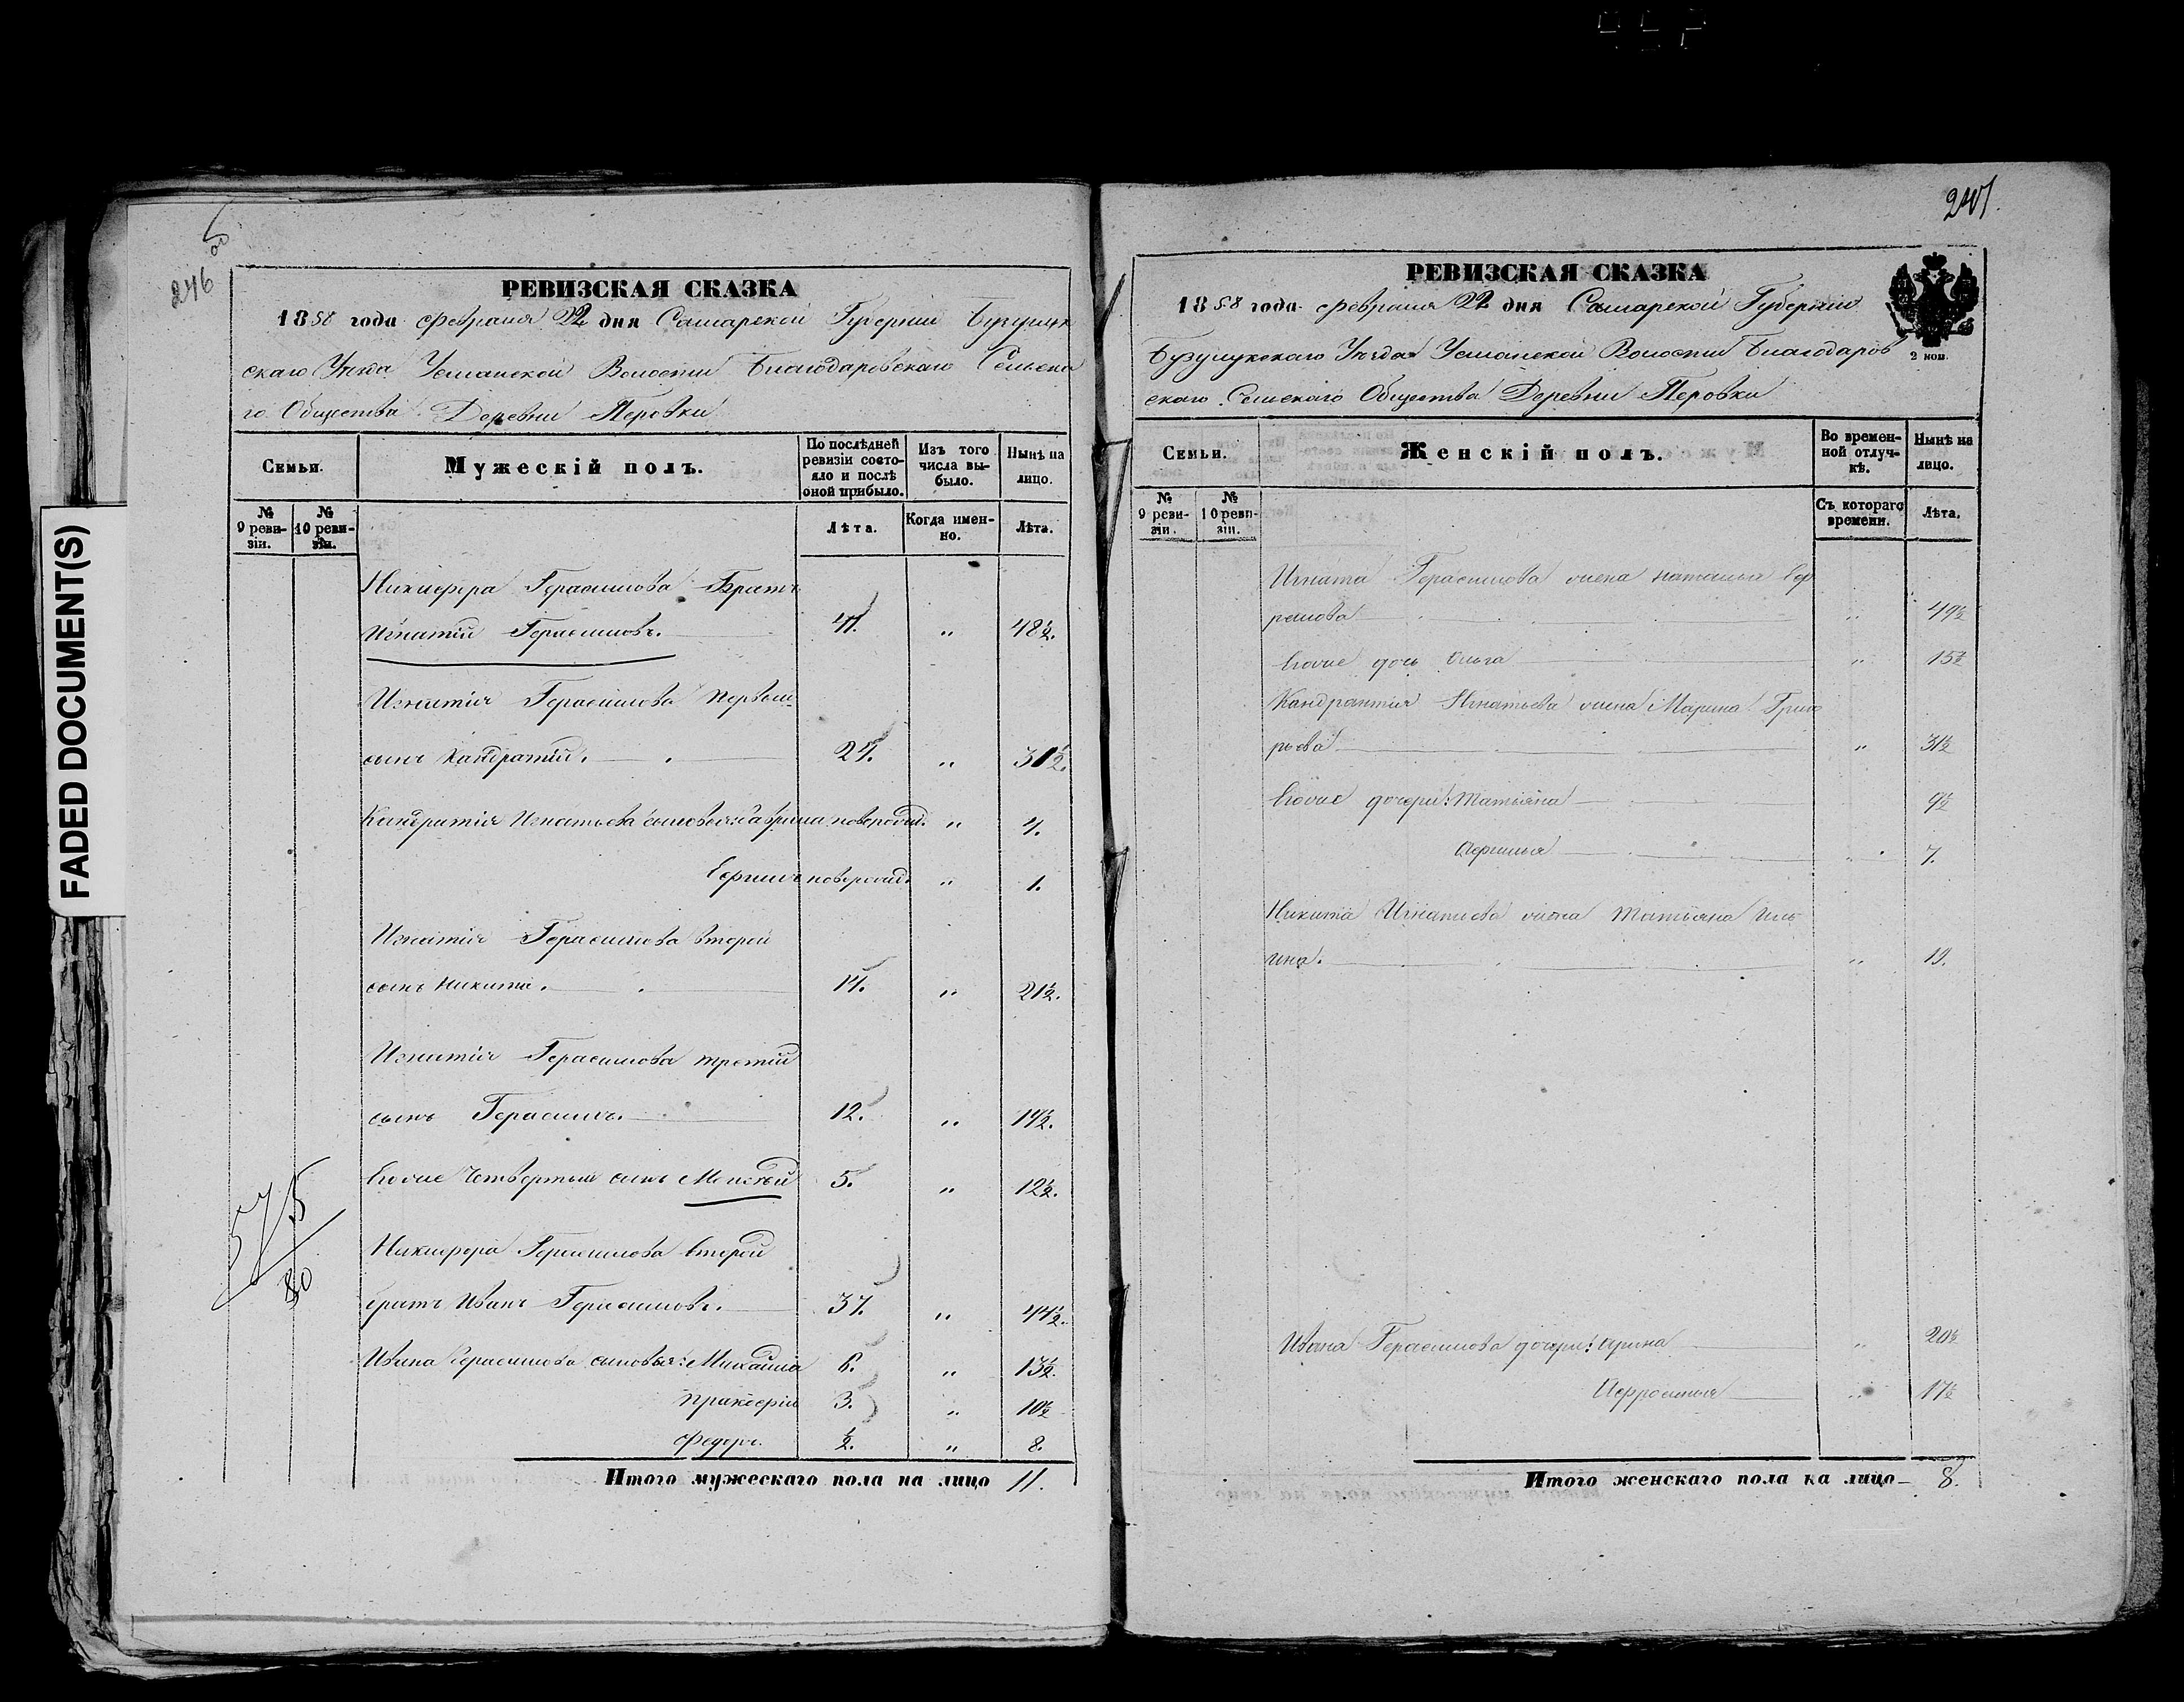 FADED DOCUMENT(S)
246
РЕВИЗСКАЯ СКАЗКА
1858 года февраля 22 дня Самарской Губернiи Бузулук
скаго Уѣзда Усманской Волости Благодаровскаго Сельска
го Общества Деревни Перовки
Семьи.
Мужескiй полъ.
По послѣдней ревизiи состо-
яло и послѣ оной прибыло.
Изъ того числа вы-
было.
Нынѣ на лицо.
№ 9 реви-
зiи.
№ 10 реви-
зiи.
Лѣта.
Когда имен-
но.
Лѣта.
Никифора Герасимова Братъ
Игнатiй Герасимовъ. 41. „ 48½.
Игнатiя Герасимова первый
сынъ Кандратiй. 24. „ 31½.
Кандратiя Игнатьева сыновья: Гаврила новорожд. „ 4.
Ефимъ новорожд. „ 1.
Игнатiя Герасимова второй
сынъ Никита. 14. „ 21½.
Игнатiя Герасимова третiй
сынъ Герасимъ. 12. „ 19½.
Ево же Четвертый сынъ Моисей 5. „ 12½.
575
80
Никифора Герасимова второй
братъ Иванъ Герасимовъ. 37. „ 44½.
Ивана Герасимова сыновья: Михайла 6. „ 13½.
3. „ 10½
Федоръ. ½. „ 8.
Итого мужескаго пола на лицо 11.
247.
РЕВИЗСКАЯ СКАЗКА
1858 года февраля 22 дня Самарской Губернiи
Бузулукскаго Уѣзда Усманской Волости Благодаров
скаго Сельскаго Общества Деревни Перовки
2 коп.
Семьи.
Женскiй полъ.
Во времен-
ной отлуч-
кѣ.
Нынѣ на лицо.
№ 9 реви-
зiи.
№ 10 реви-
зiи.
Съ котораго времени.
Лѣта.
Игната Герасимова жена Наталья Еф
ремова „ 49½
Ево же дочь Ольга „ 15½
Кандратiя Игнатьева жена Марина Григо
рьева „ 31½
Ево же дочери: Татьяна 9½
„ 7.
Никита Игнатьева жена Татьяна Иль
ина. „ 19.
Ивана Герасимова дочери: Арина „ 20½
Афросинья „ 17½
Итого женскаго пола на лицо 8.